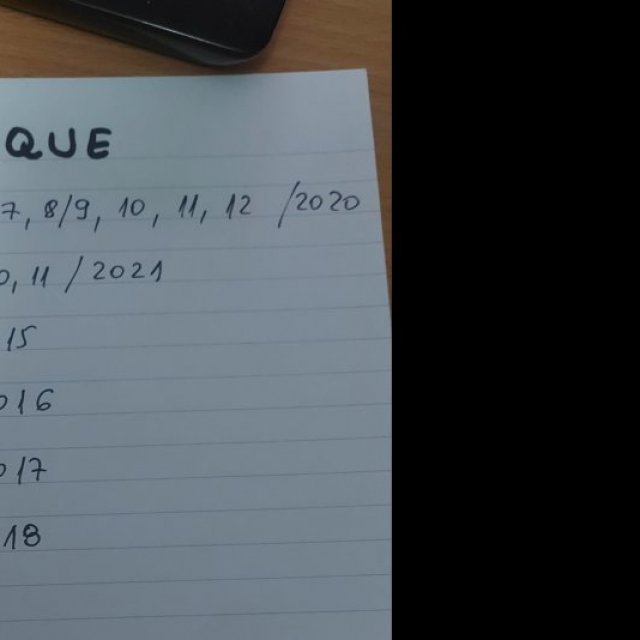 QUE
7, 8/9, 10, 11, 12 /2020
0, 11 / 2021
15
016
017
18